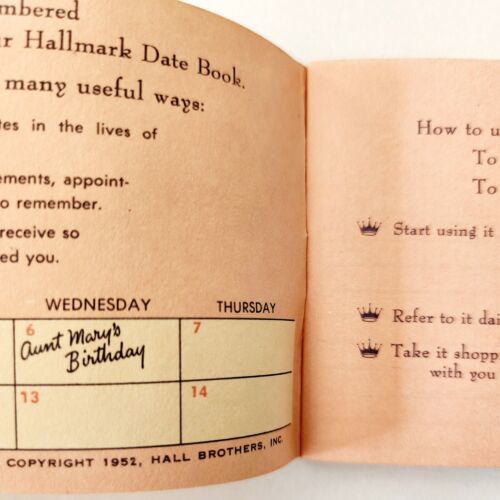 mbered
ur Hallmark Date Book.
many useful ways:
tes in the lives of
ements, appoint-
o remember.
receive so
ed you.
WEDNESDAY THURSDAY
6 7
Aunt Mary's
Birthday
13 14
COPYRIGHT 1952, HALL BROTHERS, INC.
How to u
To
To
Start using it
Refer to it dai
Take it shopp
with you